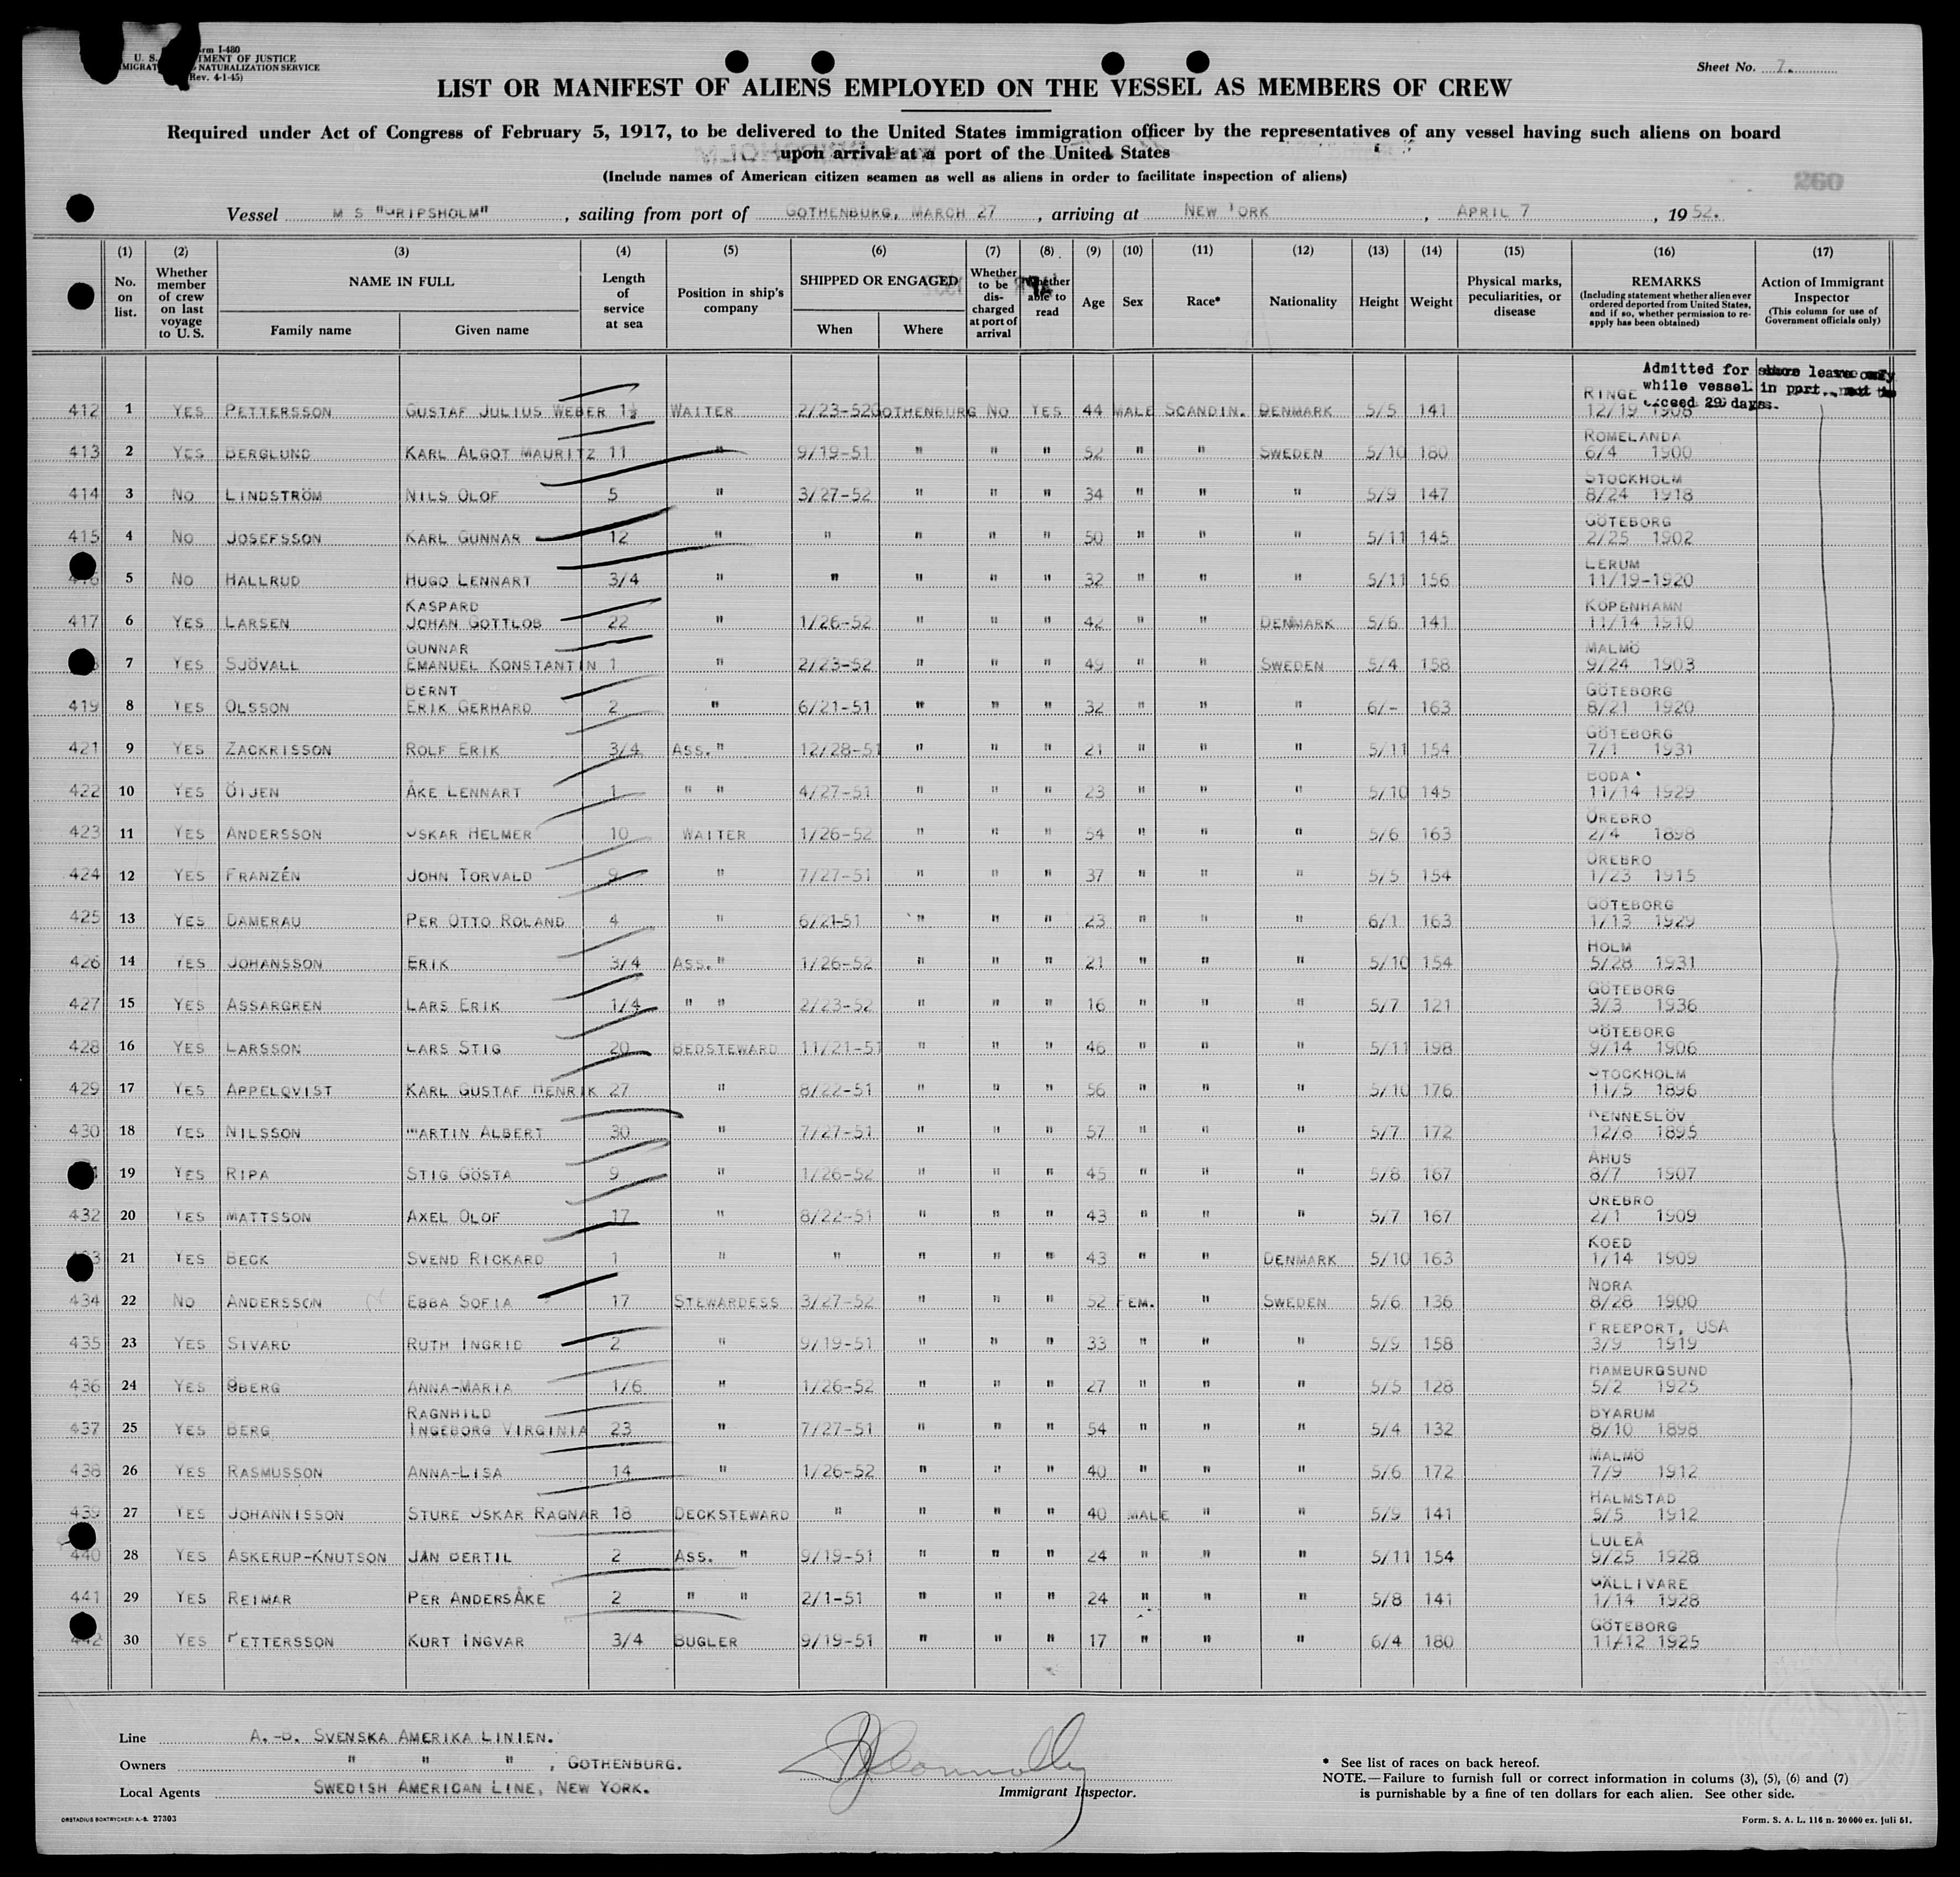 Form I-480
U. S. DEPARTMENT OF JUSTICE
IMMIGRATION AND NATURALIZATION SERVICE
(Rev. 4-1-45)
Sheet No. 7.
LIST OR MANIFEST OF ALIENS EMPLOYED ON THE VESSEL AS MEMBERS OF CREW
Required under Act of Congress of February 5, 1917, to be delivered to the United States immigration officer by the representatives of any vessel having such aliens on board
upon arrival at a port of the United States
(Include names of American citizen seamen as well as aliens in order to facilitate inspection of aliens)
260
Vessel M S "GRIPSHOLM", sailing from port of GOTHENBURG, MARCH 27, arriving at NEW YORK, APRIL 7, 1952.
(1) (2) (3) (4) (5) (6) (7) (8) (9) (10) (11) (12) (13) (14) (15) (16) (17)
No. on list. Whether member of crew on last voyage to U. S. NAME IN FULL Family name Given name Length of service at sea Position in ship's company SHIPPED OR ENGAGED When Where Whether to be discharged at port of arrival Whether able to read Age Sex Race* Nationality Height Weight Physical marks, peculiarities, or disease REMARKS (Including statement whether alien ever ordered deported from United States, and if so, whether permission to re-apply has been obtained) Action of Immigrant Inspector (This column for use of Government officials only)
Admitted for shore leave only
while vessel in port, not to
exceed 29 days.
412 1 YES PETTERSSON GUSTAF JULIUS WEBER 1½ WAITER 2/23-52 GOTHENBURG NO YES 44 MALE SCANDIN. DENMARK 5/5 141 RINGE 12/19 1908
413 2 YES BERGLUND KARL ALGOT MAURITZ 11 " 9/19-51 " " " 52 " " SWEDEN 5/10 180 ROMELANDA 6/4 1900
414 3 NO LINDSTRÖM NILS OLOF 5 " 3/27-52 " " " 34 " " " 5/9 147 STOCKHOLM 8/24 1918
415 4 NO JOSEFSSON KARL GUNNAR 12 " " " " " 50 " " " 5/11 145 GÖTEBORG 2/25 1902
5 NO HALLRUD HUGO LENNART 3/4 " " " " " 32 " " " 5/11 156 LERUM 11/19-1920
417 6 YES LARSEN KASPARD JOHAN GOTTLOB 22 " 1/26-52 " " " 42 " " DENMARK 5/6 141 KÖPENHAMN 11/14 1910
7 YES SJÖVALL GUNNAR EMANUEL KONSTANTIN 1 " 2/23-52 " " " 49 " " SWEDEN 5/4 158 MALMÖ 9/24 1903
419 8 YES OLSSON BERNT ERIK GERHARD 2 " 6/21-51 " " " 32 " " " 6/- 163 GÖTEBORG 8/21 1920
421 9 YES ZACKRISSON ROLF ERIK 3/4 ASS. " 12/28-51 " " " 21 " " " 5/11 154 GÖTEBORG 7/1 1931
422 10 YES ÖIJEN ÅKE LENNART 1 " " 4/27-51 " " " 23 " " " 5/10 145 BODA 11/14 1929
423 11 YES ANDERSSON OSKAR HELMER 10 WAITER 1/26-52 " " " 54 " " " 5/6 163 ÖREBRO 2/4 1898
424 12 YES FRANZÉN JOHN TORVALD 9 " 7/27-51 " " " 37 " " " 5/5 154 ÖREBRO 1/23 1915
425 13 YES DAMERAU PER OTTO ROLAND 4 " 6/21-51 " " " 23 " " " 6/1 163 GÖTEBORG 1/13 1929
426 14 YES JOHANSSON ERIK 3/4 ASS. " 1/26-52 " " " 21 " " " 5/10 154 HOLM 5/28 1931
427 15 YES ASSARGREN LARS ERIK 1/4 " " 2/23-52 " " " 16 " " " 5/7 121 GÖTEBORG 3/3 1936
428 16 YES LARSSON LARS STIG 20 BEDSTEWARD 11/21-51 " " " 46 " " " 5/11 198 GÖTEBORG 9/14 1906
429 17 YES APPELQVIST KARL GUSTAF HENRIK 27 " 8/22-51 " " " 56 " " " 5/10 176 STOCKHOLM 11/5 1896
430 18 YES NILSSON MARTIN ALBERT 30 " 7/27-51 " " " 57 " " " 5/7 172 RENNESLÖV 12/8 1895
19 YES RIPA STIG GÖSTA 9 " 1/26-52 " " " 45 " " " 5/8 167 ÅHUS 8/7 1907
432 20 YES MATTSSON AXEL OLOF 17 " 8/22-51 " " " 43 " " " 5/7 167 ÖREBRO 2/1 1909
21 YES BECK SVEND RICKARD 1 " " " " " 43 " " DENMARK 5/10 163 KOED 1/14 1909
434 22 NO ANDERSSON EBBA SOFIA 17 STEWARDESS 3/27-52 " " " 52 FEM. " SWEDEN 5/6 136 NORA 8/28 1900
435 23 YES SIVARD RUTH INGRID 2 " 9/19-51 " " " 33 " " " 5/9 158 FREEPORT, USA 3/9 1919
436 24 YES ÖBERG ANNA-MARIA 1/6 " 1/26-52 " " " 27 " " " 5/5 128 HAMBURGSUND 5/2 1925
437 25 YES BERG RAGNHILD INGEBORG VIRGINIA 23 " 7/27-51 " " " 54 " " " 5/4 132 BYARUM 8/10 1898
438 26 YES RASMUSSON ANNA-LISA 14 " 1/26-52 " " " 40 " " " 5/6 172 MALMÖ 7/9 1912
439 27 YES JOHANNISSON STURE OSKAR RAGNAR 18 DECKSTEWARD " " " " 40 MALE " " 5/9 141 HALMSTAD 5/5 1912
440 28 YES ASKERUP-KNUTSON JAN BERTIL 2 ASS. " 9/19-51 " " " 24 " " " 5/11 154 LULEÅ 9/25 1928
441 29 YES REIMAR PER ANDERSÅKE 2 " " 2/1-51 " " " 24 " " " 5/8 141 GÄLLIVARE 1/14 1928
442 30 YES PETTERSSON KURT INGVAR 3/4 BUGLER 9/19-51 " " " 17 " " " 6/4 180 GÖTEBORG 11/12 1925
Line A.-B. SVENSKA AMERIKA LINIEN.
Owners " " " , GOTHENBURG.
Local Agents SWEDISH AMERICAN LINE, NEW YORK.
Connolly
Immigrant Inspector.
* See list of races on back hereof.
NOTE.—Failure to furnish full or correct information in colums (3), (5), (6) and (7)
is purnishable by a fine of ten dollars for each alien. See other side.
ORSTADIUS BOKTRYCKERI A.-B. 27303
Form. S. A. L. 116 n. 20 000 ex. juli 51.